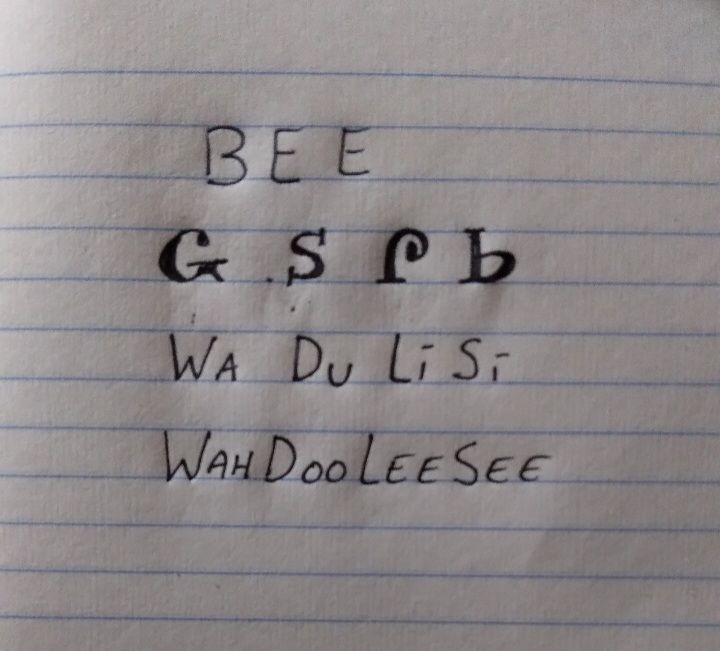 BEE
ᏩᏚᎵᏏ
WA DU Li Si
WAHDOOLEESEE